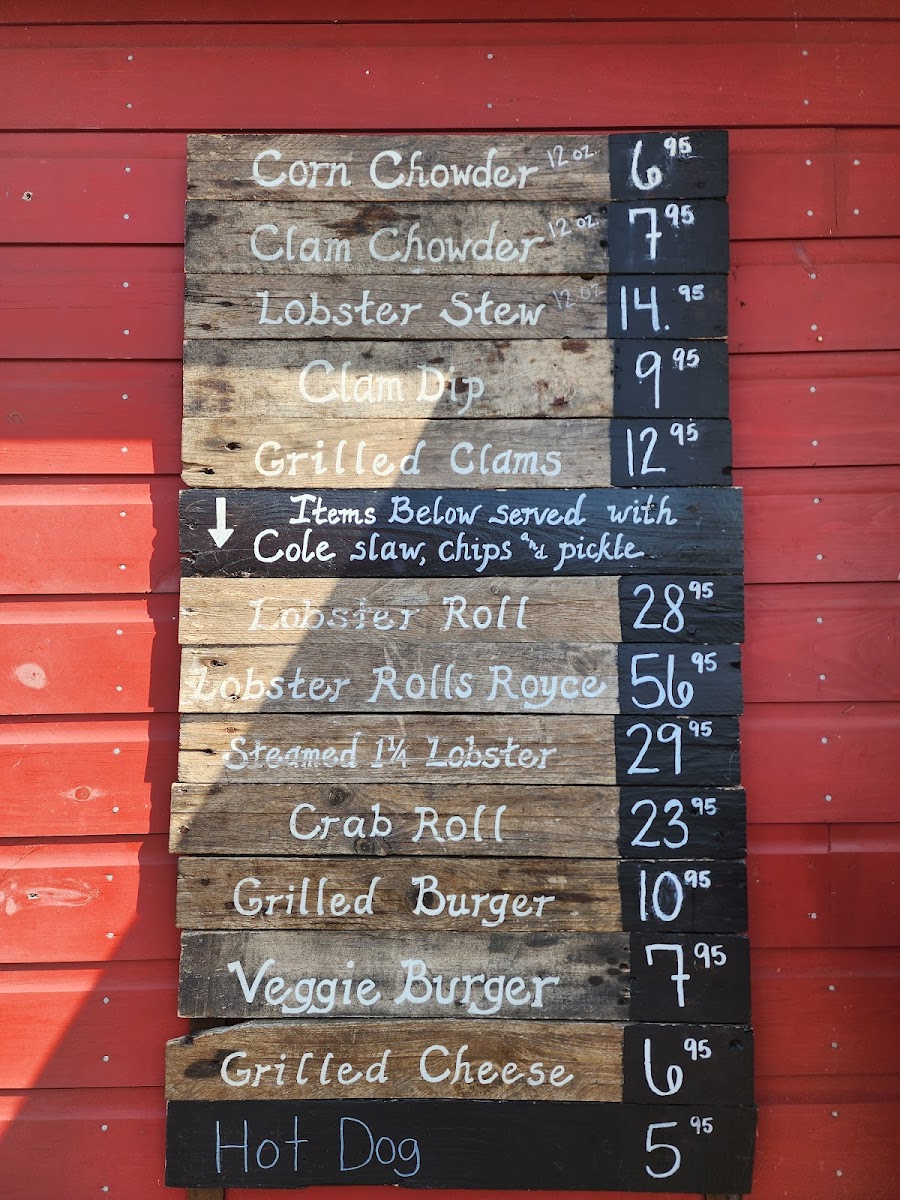 Corn Chowder 12 oz. 6 95
Clam Chowder 12 oz. 7 95
Lobster Stew 12 oz 14. 95
Clam Dip 9 95
Grilled Clams 12 95
Items Below served with
Cole slaw, chips and pickle
Lobster Roll 28 95
Lobster Rolls Royce 56 95
Steamed 1¼ Lobster 29 95
Crab Roll 23 95
Grilled Burger 10 95
Veggie Burger 7 95
Grilled Cheese 6 95
Hot Dog 5 95